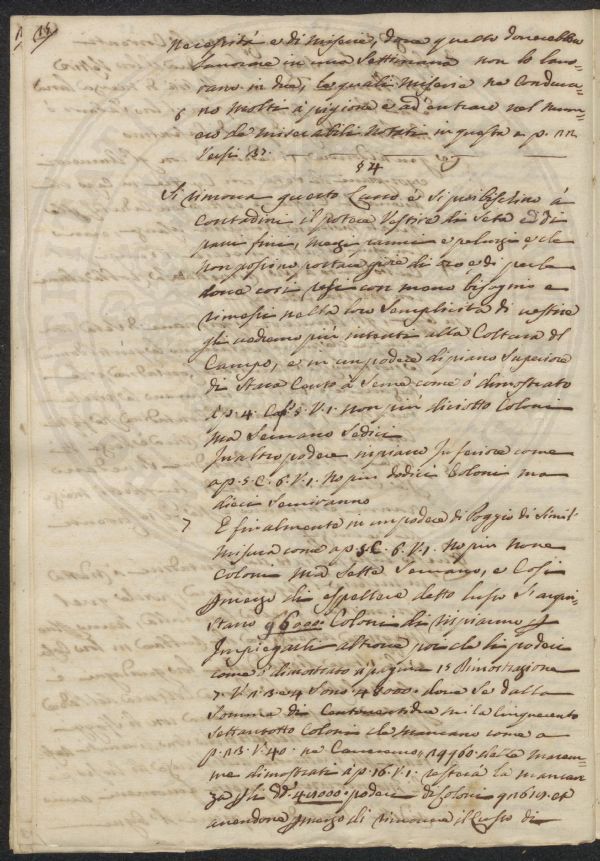 15
necessità e di miserie, dove quello dovrebbe
lavorare in una Settimana non lo lavo=
rano in due, le quali miserie ne conduca=
6 no molti a pigione e ad entrare nel num=
ero de miserabili notati in questa a p. 22
Versi 3?
§ 4
Si rimova questo Lusso e si proibischino à
Contadini il potere Vestire di Seta e di
pani fini, mezi e peluzi e che
non possino portare gioie di oro, e di perle
dove così resi con meno bisognio e
rimessi nella loro Semplicità di vestire
gli vedremo più intenti alla Coltura del
Campo, e in un podere di piano Superiore
di Staia Cento à Seme come è dimostrato
à p. 4. C. 5. V. 1. non più diciotto Coloni
mà Seranno Sedici
In altro podere in piano Inferiore come
a p. 5. C. 6. V. 1. No più dodici Coloni ma
dieci Seranno
7 E finalmente in un podere di Poggio di Simil=
Misura come a p. 5. C. 6. V. 1. No più nove
Coloni mà Sette Seranno, e Così
mezo di espellere detto lusso S'aqui=
stano 96000: Coloni di risparmio
Impiegarli altrove poi che li poderi
come è dimostrato à pagina 15 Dimostrazione
7. V. 1. 3 e 4 sono 48000. dove Se dalla
Somma di mila cinquecento
Settantotto Coloni che mancano come a
p. 23. V. 40. ne Caveremo 29960 dalle Marem=
me dimostrati à p. 16. V. 1. restera la mancan=
za li D.i 48000 poderi di Coloni et
avendone mezo di rimovere il Lusso di